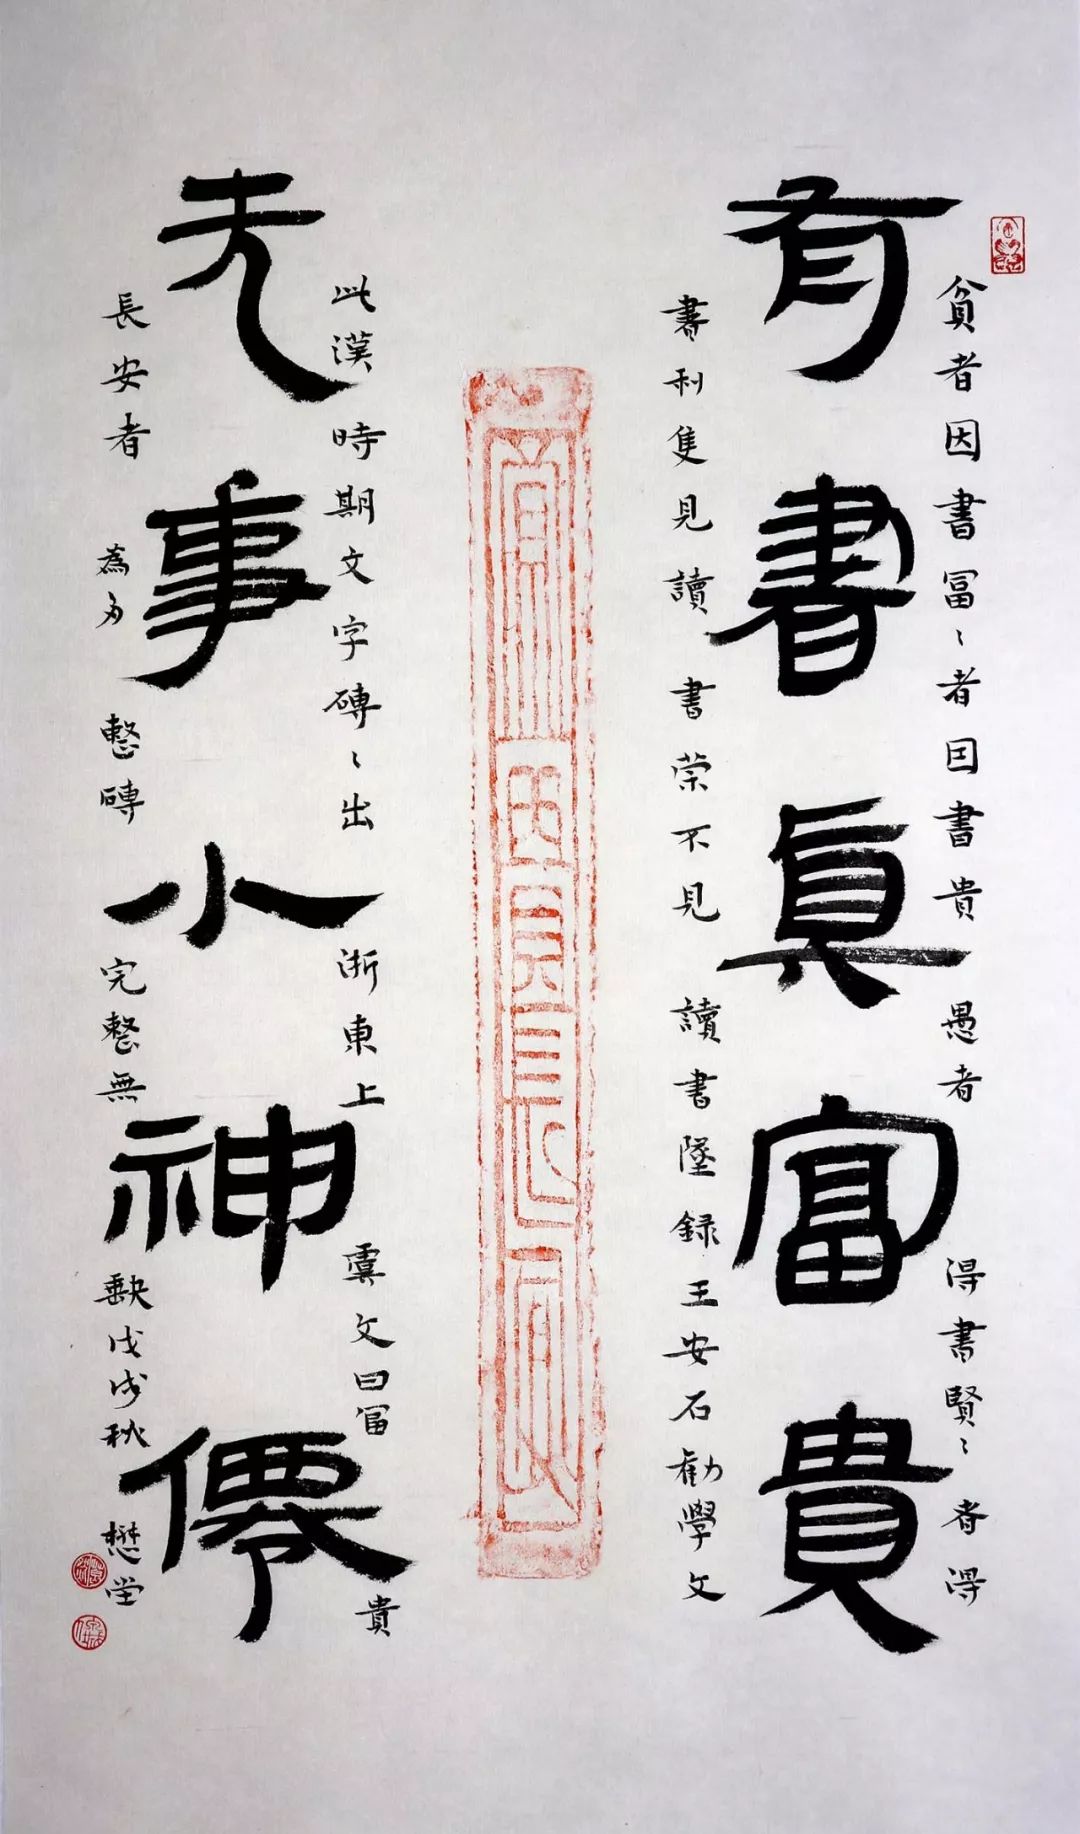 有書真富貴
貧者因書冨〻者因書貴愚者得書賢〻者得
書利隻見讀書荣不見讀書墜録王安石勸學文
无事小神僊
此漢時期文字磚〻出浙東上虞文曰冨貴
長安者為多整磚完整無缺戊戌秋懋堂